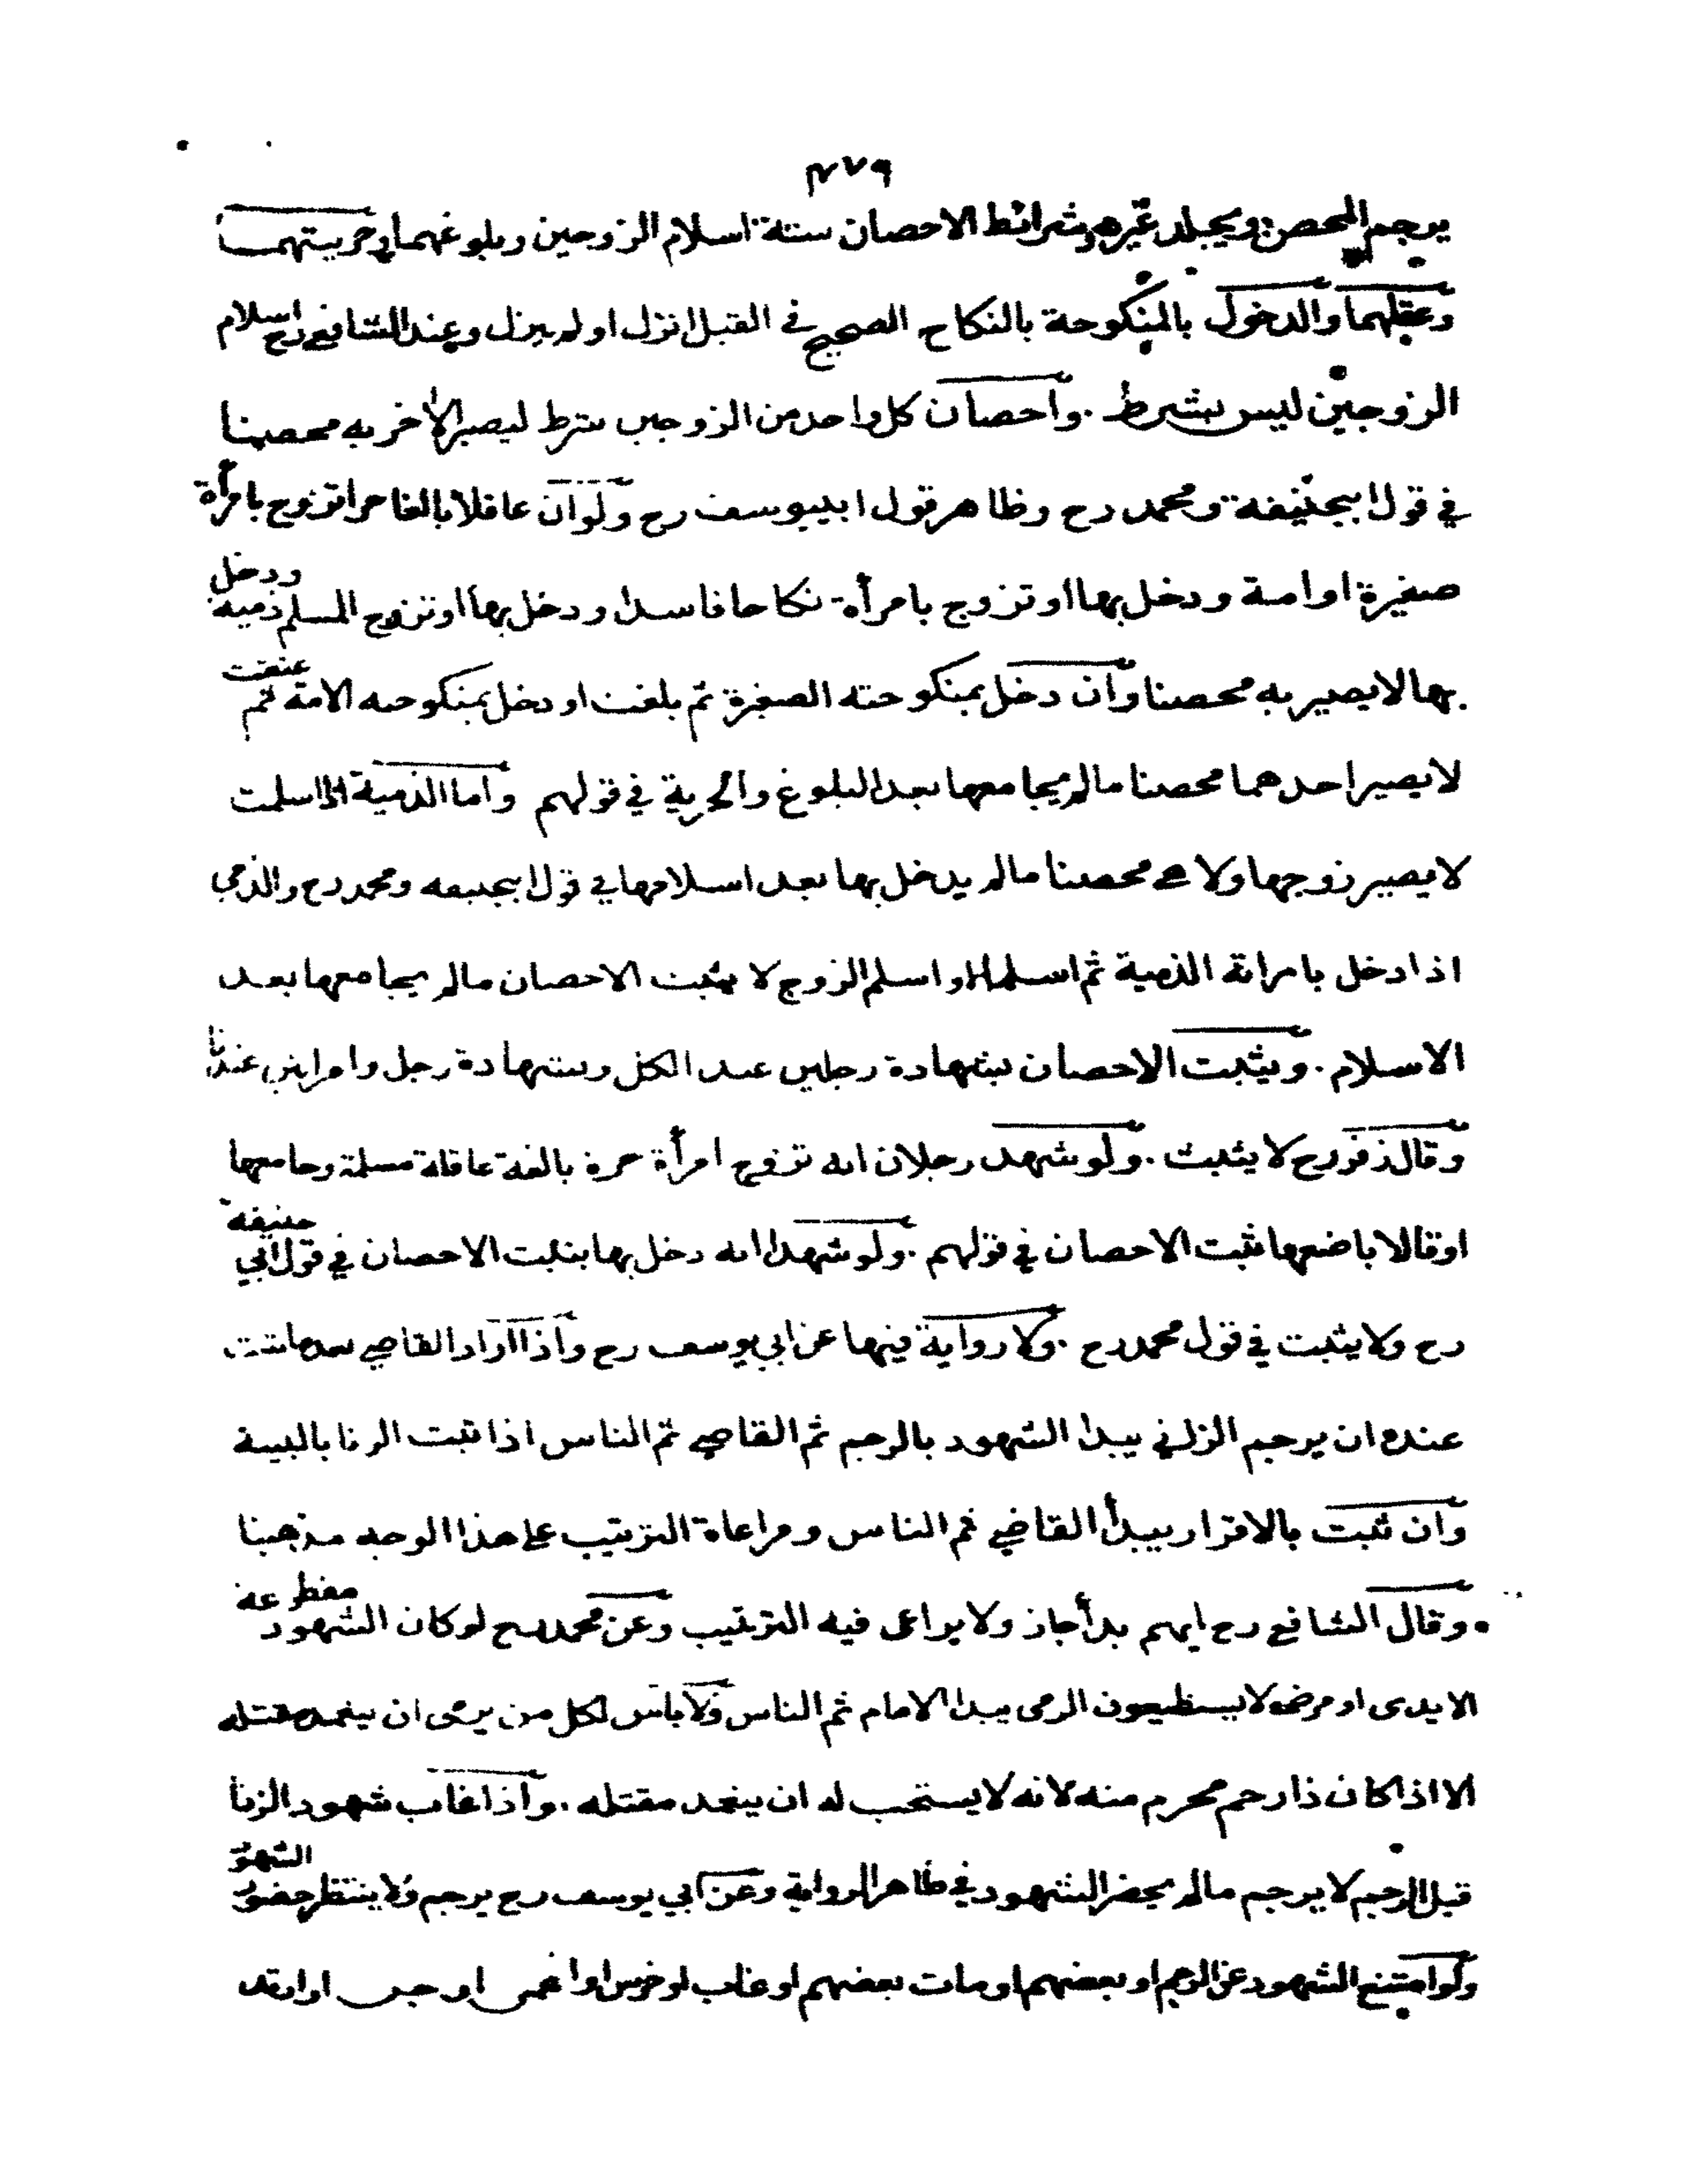 ٤٧٩
يرجم المحصن ويجلد غيره وشرائط الاحصان ستة اسلام الزوجين وبلوغهما وحريتهما
وعقلهما والدخول بالمنكوحة بالنكاح الصحيح في القبل انزل او لم ينزل وعند الشافعي رح اسلام
الزوجين ليس بشرط . واحصان كل واحد من الزوجين شرط ليصير الاخر به محصنا
في قول ابيحنيفة ومحمد رح وظاهر قول ابييوسف رح ولو ان عاقلا بالغا حرا تزوج بامرأة
صغيرة او امة ودخل بها او تزوج بامرأة نكاحا فاسدا ودخل بها او تزوج المسلم ذمية ودخل
بها لا يصير به محصنا وان دخل بمنكوحته الصغيرة ثم بلغت او دخل بمنكوحته الامة ثم عتقت
لا يصير احدهما محصنا ما لم يجامعها بعد البلوغ والحرية في قولهم واما الذمية اذا اسلمت
لا يصير زوجها ولا هي محصنا ما لم يدخل بها بعد اسلامها في قول ابيحنيفه ومحمد رح والذمي
اذا دخل بامراته الذمية ثم اسلما او اسلم الزوج لا يثبت الاحصان ما لم يجامعها بعد
الاسلام . ويثبت الاحصان بشهادة رجلين عند الكل وبشهادة رجل وامراتين عندنا
وقال زفر رح لا يثبت . ولو شهد رجلان انه تزوج امرأة حرة بالغة عاقلة مسلمة وجامعها
او قالا باضعها يثبت الاحصان في قولهم . ولو شهدا انه دخل بها يثبت الاحصان في قول ابي حنيفه
رح ولا يثبت في قول محمد رح . ولا رواية فيها عن ابي يوسف رح واذا اراد القاضي بعد ما ثبت
عنده ان يرجم الزاني يبدأ الشهود بالرجم ثم القاضي ثم الناس اذا ثبت الزنا بالبينة
وان ثبت بالاقرار يبدأ القاضي ثم الناس ومراعاة الترتيب على هذا الوجه مذهبنا
وقال الشافعي رح ايهم بدأ جاز ولا يراعى فيه الترتيب وعن محمد رح لو كان الشهود مقطوعة
الايدى او مرضى لا يستطيعون الرمى يبدا الامام ثم الناس ولا باس لكل من يرمى ان يتعمد مقتله
الا اذا كان ذا رحم محرم منه لانه لا يستحب له ان يتعمد مقتله . واذا غاب شهود الزنا
قبل الرجم لا يرجم ما لم يحضر الشهود في ظاهر الرواية وعن ابي يوسف رح يرجم ولا ينتظر حضور الشهود
ولو امتنع الشهود عن الرجم او بعضهم او مات بعضهم او غاب او خرس او اعمى او جن او ارتد